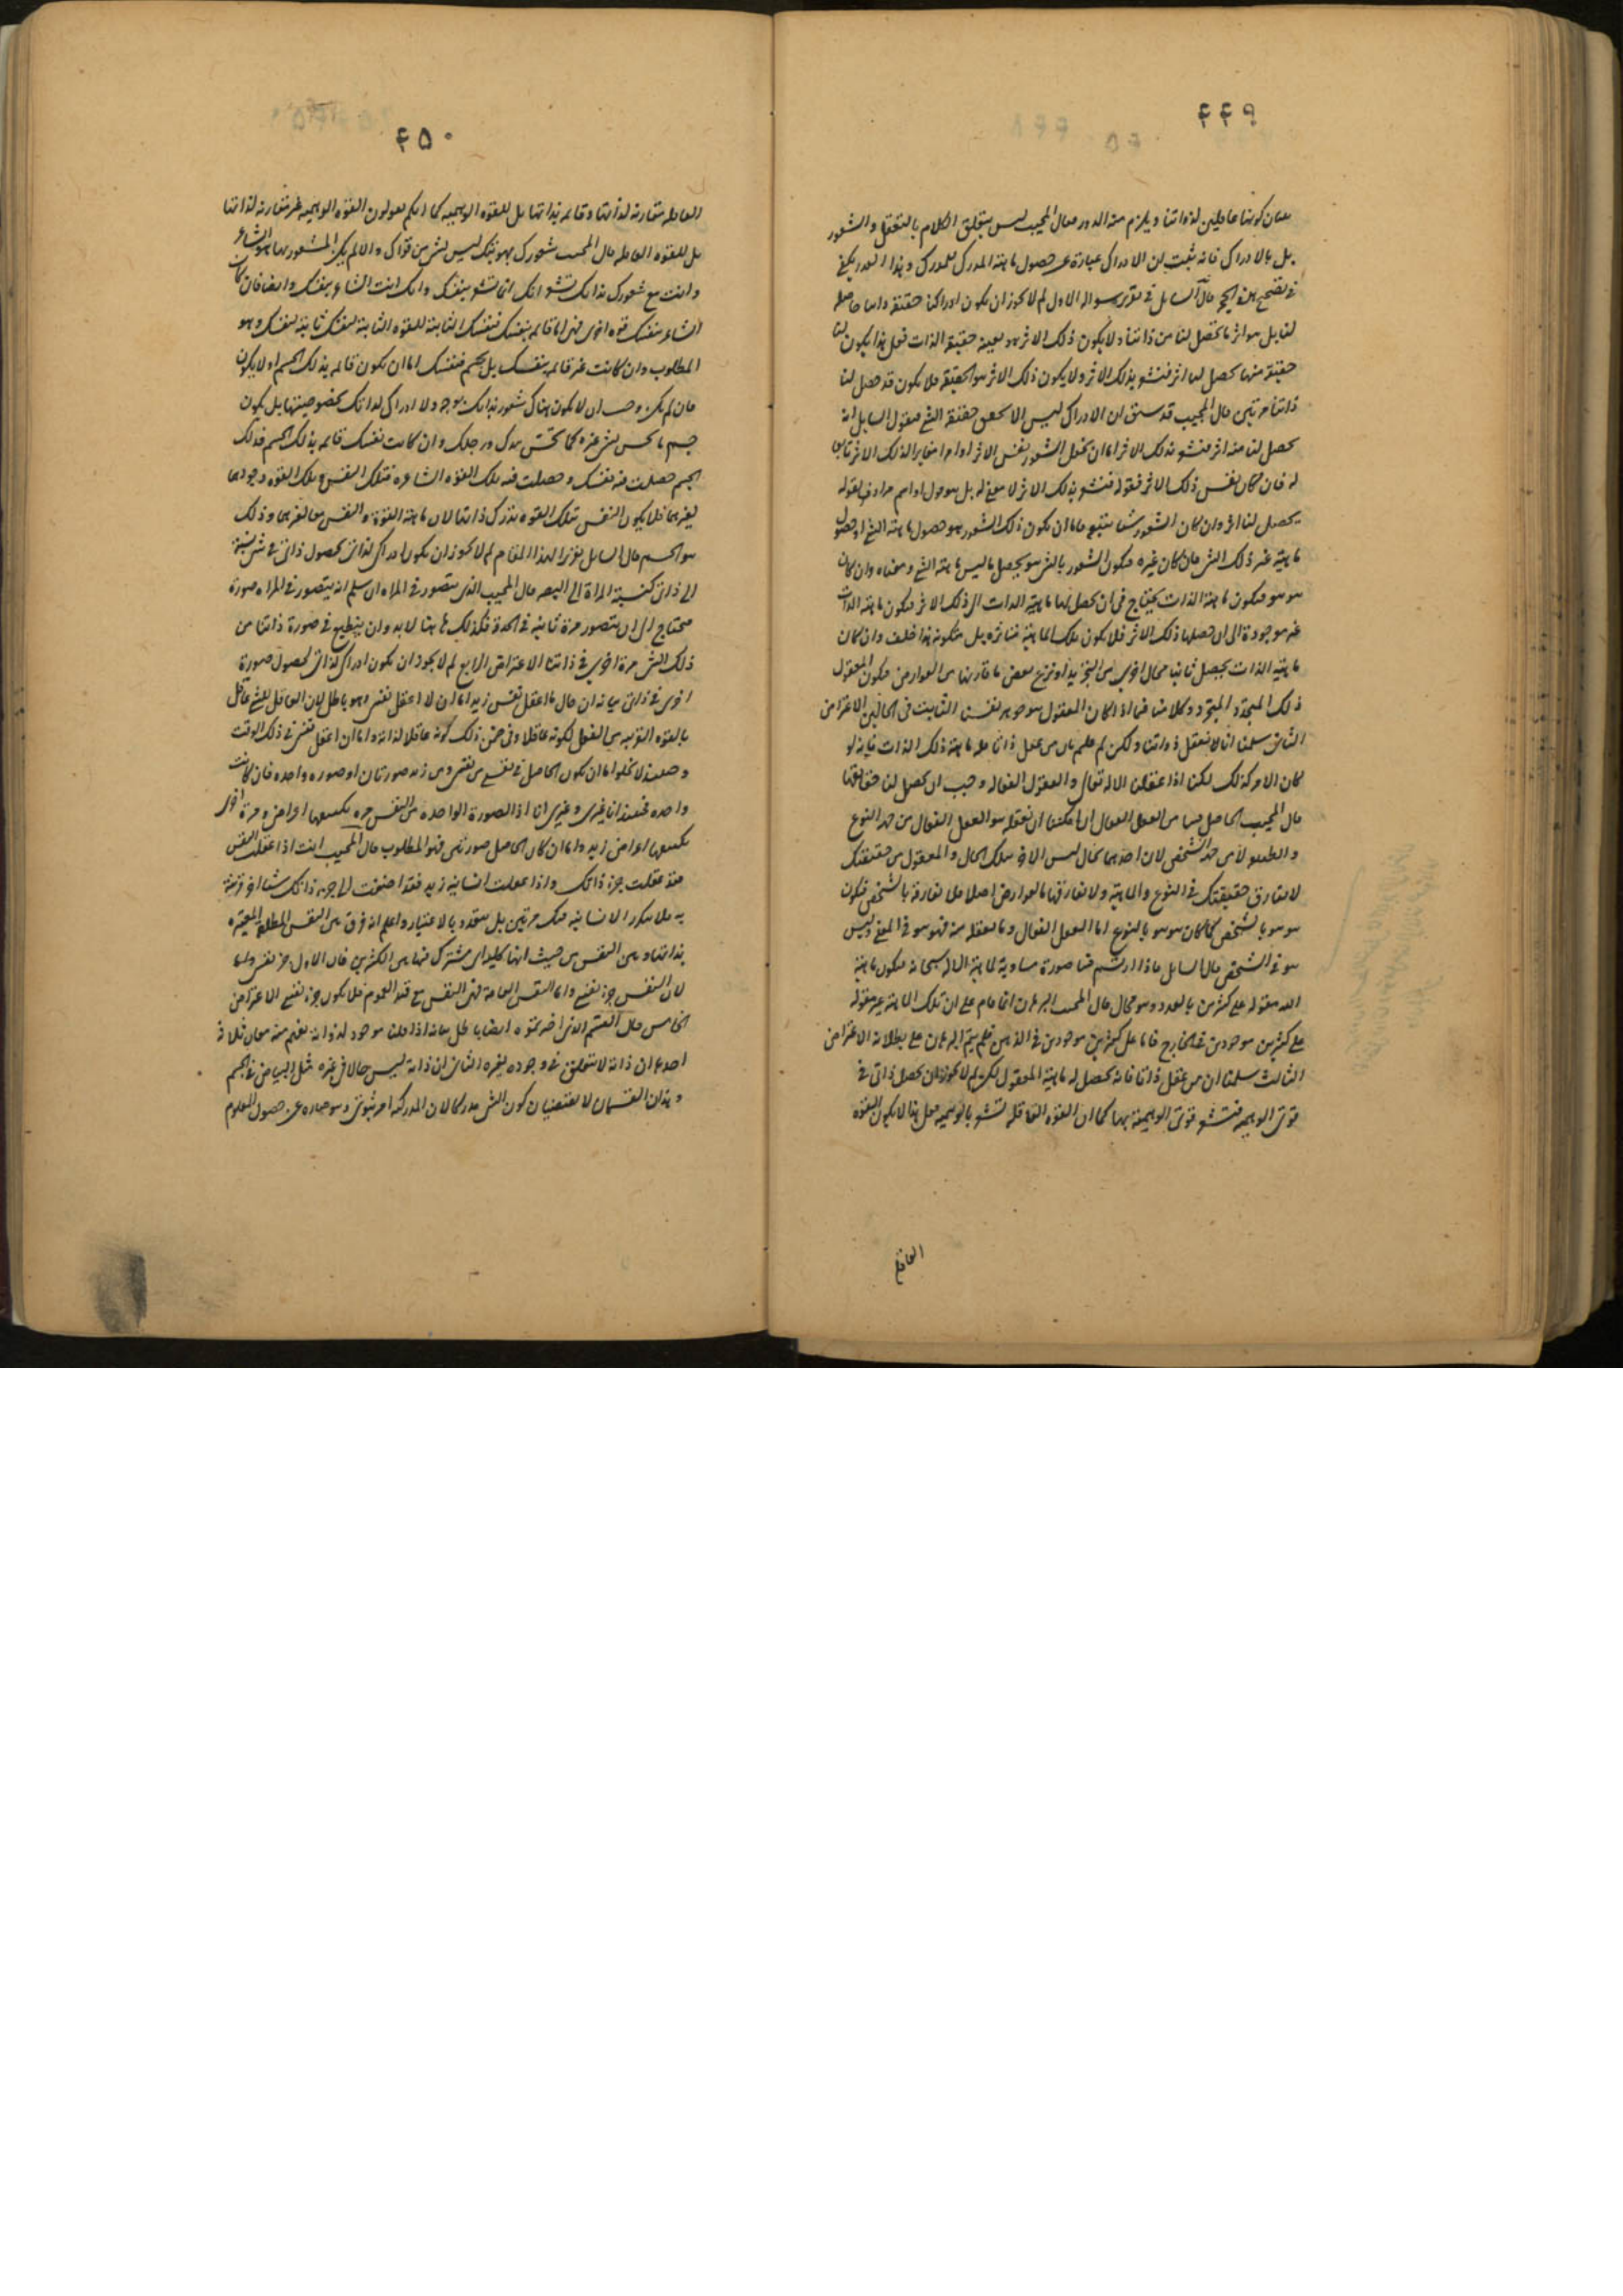 ۴۴۹
بيان كونها عاقلين لذواتنا ويلزم منه الدور فقال المجيب ليس يتعلق الكلام بالتعقل والشعور
بل بالادراك فانه ثبت ان الادراك عبارة عن حصول ماهية المدرك للمدرك وهذا القدر يكفى
فى تصحيح هذه الحجة قال السايل فى سواله الاول لم لا يجوز ان يكون ادراكنا حقيقة ذاتنا حاصلة
لنا بل هو اثر ما تحصل لنا من ذاتنا ولا يكون ذلك الاثر هو بعينه حقيقة الذات فعلى هذا يكون لنا
حقيقة منها يحصل لنا اثر فنشعر بذلك الاثر ولا يكون ذلك الاثر هو الحقيقة فلا يكون قد حصل لنا
ذاتنا مرتين قال المجيب قد سبق ان الادراك ليس الا تحقق حقيقة الشئ فقول السايل انه
يحصل لنا منه اثر فنشعر بذلك الاثر اما ان يجعل الشعور نفس الاثر او امرا مغايرا لذلك الاثر تابعا
له فان كان نفس ذلك الاثر فقوله فنشعر بذلك الاثر لا معنى له بل هو قول او اسم مرادف لقوله
يحصل لنا اثر وان كان الشعور شيئا يتبعه فاما ان يكون ذلك الشعور هو حصول ماهية الشئ او حصول
ماهية غير ذلك الشئ فان كان غيره فيكون الشعور بالشئ هو تحصيل ما ليس ماهية الشئ ومعناه وان كان
هو هو فيكون ماهية الذات يحتاج فى ان يحصل لها ماهية الذات الى ذلك الاثر فيكون ماهية الذات
غير موجودة الى ان حصلها ذلك الاثر فلا يكون تلك الماهية متاثرة بل متكونة هذا خلف وان كان
ماهية الذات يحصل ثانيا بحال اخرى من التجريد او نزع بعض ما قارنها من العوارض فيكون المعقول
ذلك المتجدد المتجرد وكلامنا فيما اذا كان المعقول هو جوهر نفسنا الثابت فى الحالين الاعتراض
الثانى سلمنا انا لا نعقل ذواتنا ولكن لم قلتم بان من عقل ذاتا فله ماهية ذلك الذات فانه لو
كان الامر كذلك لكنا اذا عقلنا الاله تعالى والعقول الفعالة وجب ان يحصل لنا حقايقها
قال المجيب الحاصل فينا من العقل الفعال ان امكننا ان نعقله هو العقل الفعال من جهة النوع
والطبيعة لا من جهة الشخص لان احدهما بحال ليس الاخر بتلك الحال والمعقول من حقيقتك
لا تفارق حقيقتك فى النوع والماهية ولا تفارقها بالعوارض اصلا فلا تفارقه بالشخص فيكون
هو هو بالشخص كما كان هو هو بالنوع اما العقل الفعال وما نعقله منه فهو هو فى المعنى وليس
هو فى الشخص قال السايل فاذا ارتسم فينا صورة مساوية لماهية الباله سبحانه فيكون ماهية
الله مقولة على كثيرين بالعدد وهو محال قال المجيب البرهان انما قام على ان تلك الماهية غير مقولة
على كثيرين موجودين فى الخارج فاما على كثيرين موجودين فى الذهن فلم يتم البرهان على بطلانه الاعتراض
الثالث سلمنا ان من عقل ذاتا فانه يحصل له ماهية المعقول لكن لم لا يجوز ان يحصل ذاتى فى
قوتى الوهمية فتشعر قوتى الوهمية بها كما ان القوة العاقلة تشعر بالوهمية فعلى هذا لا يكون القوة
العاقلة
۴۵۰
العاقلة مقارنة لذاتها وقايمة بذاتها بل للقوة الوهمية كما انكم تقولون القوة الوهمية غير مقارنة لذاتها
بل للقوة العاقلة قال المجيب شعورك بهويتك ليس بشئ من قواك والا لم يكن المشعور بها هو الشاعر
وانت مع شعورك بذاتك تشعر انك انما تشعر بنفسك وانك انت الشاعر بنفسك وايضا فان كان
الشاعر بنفسك قوة اخرى فهى اما قايمة بنفسك فنفسك الثابتة للقوة الثابتة لنفسك ثابتة لنفسك وهو
المطلوب وان كانت غير قايمة بنفسك بل بجسم فنفسك اما ان يكون قايمة بذلك الجسم او لا يكون
فان لم يكن وجب ان لا يكون هناك شعور بذاتك بوجه ولا ادراك لذاتك بخصوصيتها بل يكون
جسم ما يحس بشئ غيره كما تحس بيدك ورجلك وان كانت نفسك قايمة بذلك الجسم فذلك
الجسم حصلت فيه نفسك وحصلت فيه تلك القوة الشاعرة فتلك النفس وتلك القوة وجودهما
لغيرهما فلا يكون النفس بتلك القوة يدرك ذاتها لان ماهية القوة والنفس معا لغيرهما وذلك
هو الجسم قال السايل تقريرا لهذا المقام لم لا يجوز ان يكون ادراكى لذاتى بحصول ذاتى فى شئ نسبته
الى ذاتى كنسبة المراة الى البصر قال المجيب الذى يتصور فى المراة ان سلم انه يتصور فى المراة صورة
فيحتاج الى ان يتصور مرة ثانية فى الحدقة فكذلك ها هنا لا بد وان ينطبع فى صورة ذاتنا من
ذلك الشئ مرة اخرى فى ذاتنا الاعتراض الرابع لم لا يجوز ان يكون ادراكى لذاتى بحصول صورة
اخرى فى ذاتى بيانه ان حال ما اعقل نفس زيد اما ان لا اعقل نفسى وهو باطل لان العاقل للشئ عاقل
بالقوة القريبة من الفعل لكونه عاقلا وفى ضمن ذلك كونه عاقلا لذاته واما ان اعقل نفسى فى ذلك الوقت
وحينئذ لا يخلو اما ان يكون الحاصل فى نفسى من نفسى ومن زيد صورتان او صورة واحدة فان كانت
واحدة فحينئذ انا غيرى وغيرى انا اذ الصورة الواحدة من النفس مرة يكتنفها اعراضى ومرة اخرى
يكتنفها اعراض زيد واما ان كان الحاصل صورتين فهو المطلوب قال المجيب انت اذا عقلت النفس
فقد عقلت جزء ذاتك واذا عقلت انسانية زيد فقد اضفت الى جزء ذاتك شيئا اخر قرنته
به فلا يتكرر الانسانية فيك مرتين بل يتعدد بالاعتبار واعلم انه فرق بين النفس المطلقة المعتبرة
بذاتها وبين النفس من حيث انها كلية اى مشترك فيها بين الكثيرين فان الاول جزء نفسى واما
لان النفس جزء نفسى واما النفس العامة فهى النفس مع قيد العموم فلا يكون جزء نفسى الاعتراض
الخامس قال القسم الذى اخترتموه ايضا باطل بيانه اذا قلنا موجود لذاته يفهم منه معان ثلاثة
احدها ان ذاته لا تتعلق فى وجوده بغيره الثانى ان ذاته ليس حالا فى غيره مثل البياض فى الجسم
وهذان القسمان لا يقتضيان كون الشئ مدركا لان المدركية امر ثبوتى وهو عبارة عن حصول المعلوم